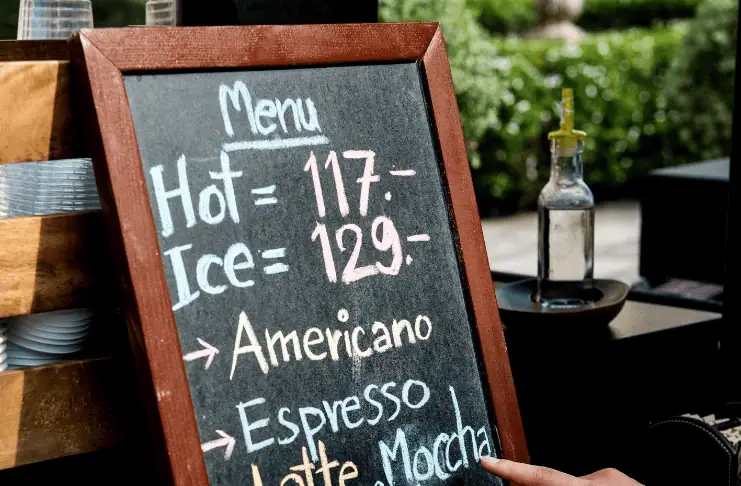 Menu
Hot = 117.-
Ice = 129.-
→ Americano
→ Espresso
Latte Moccha